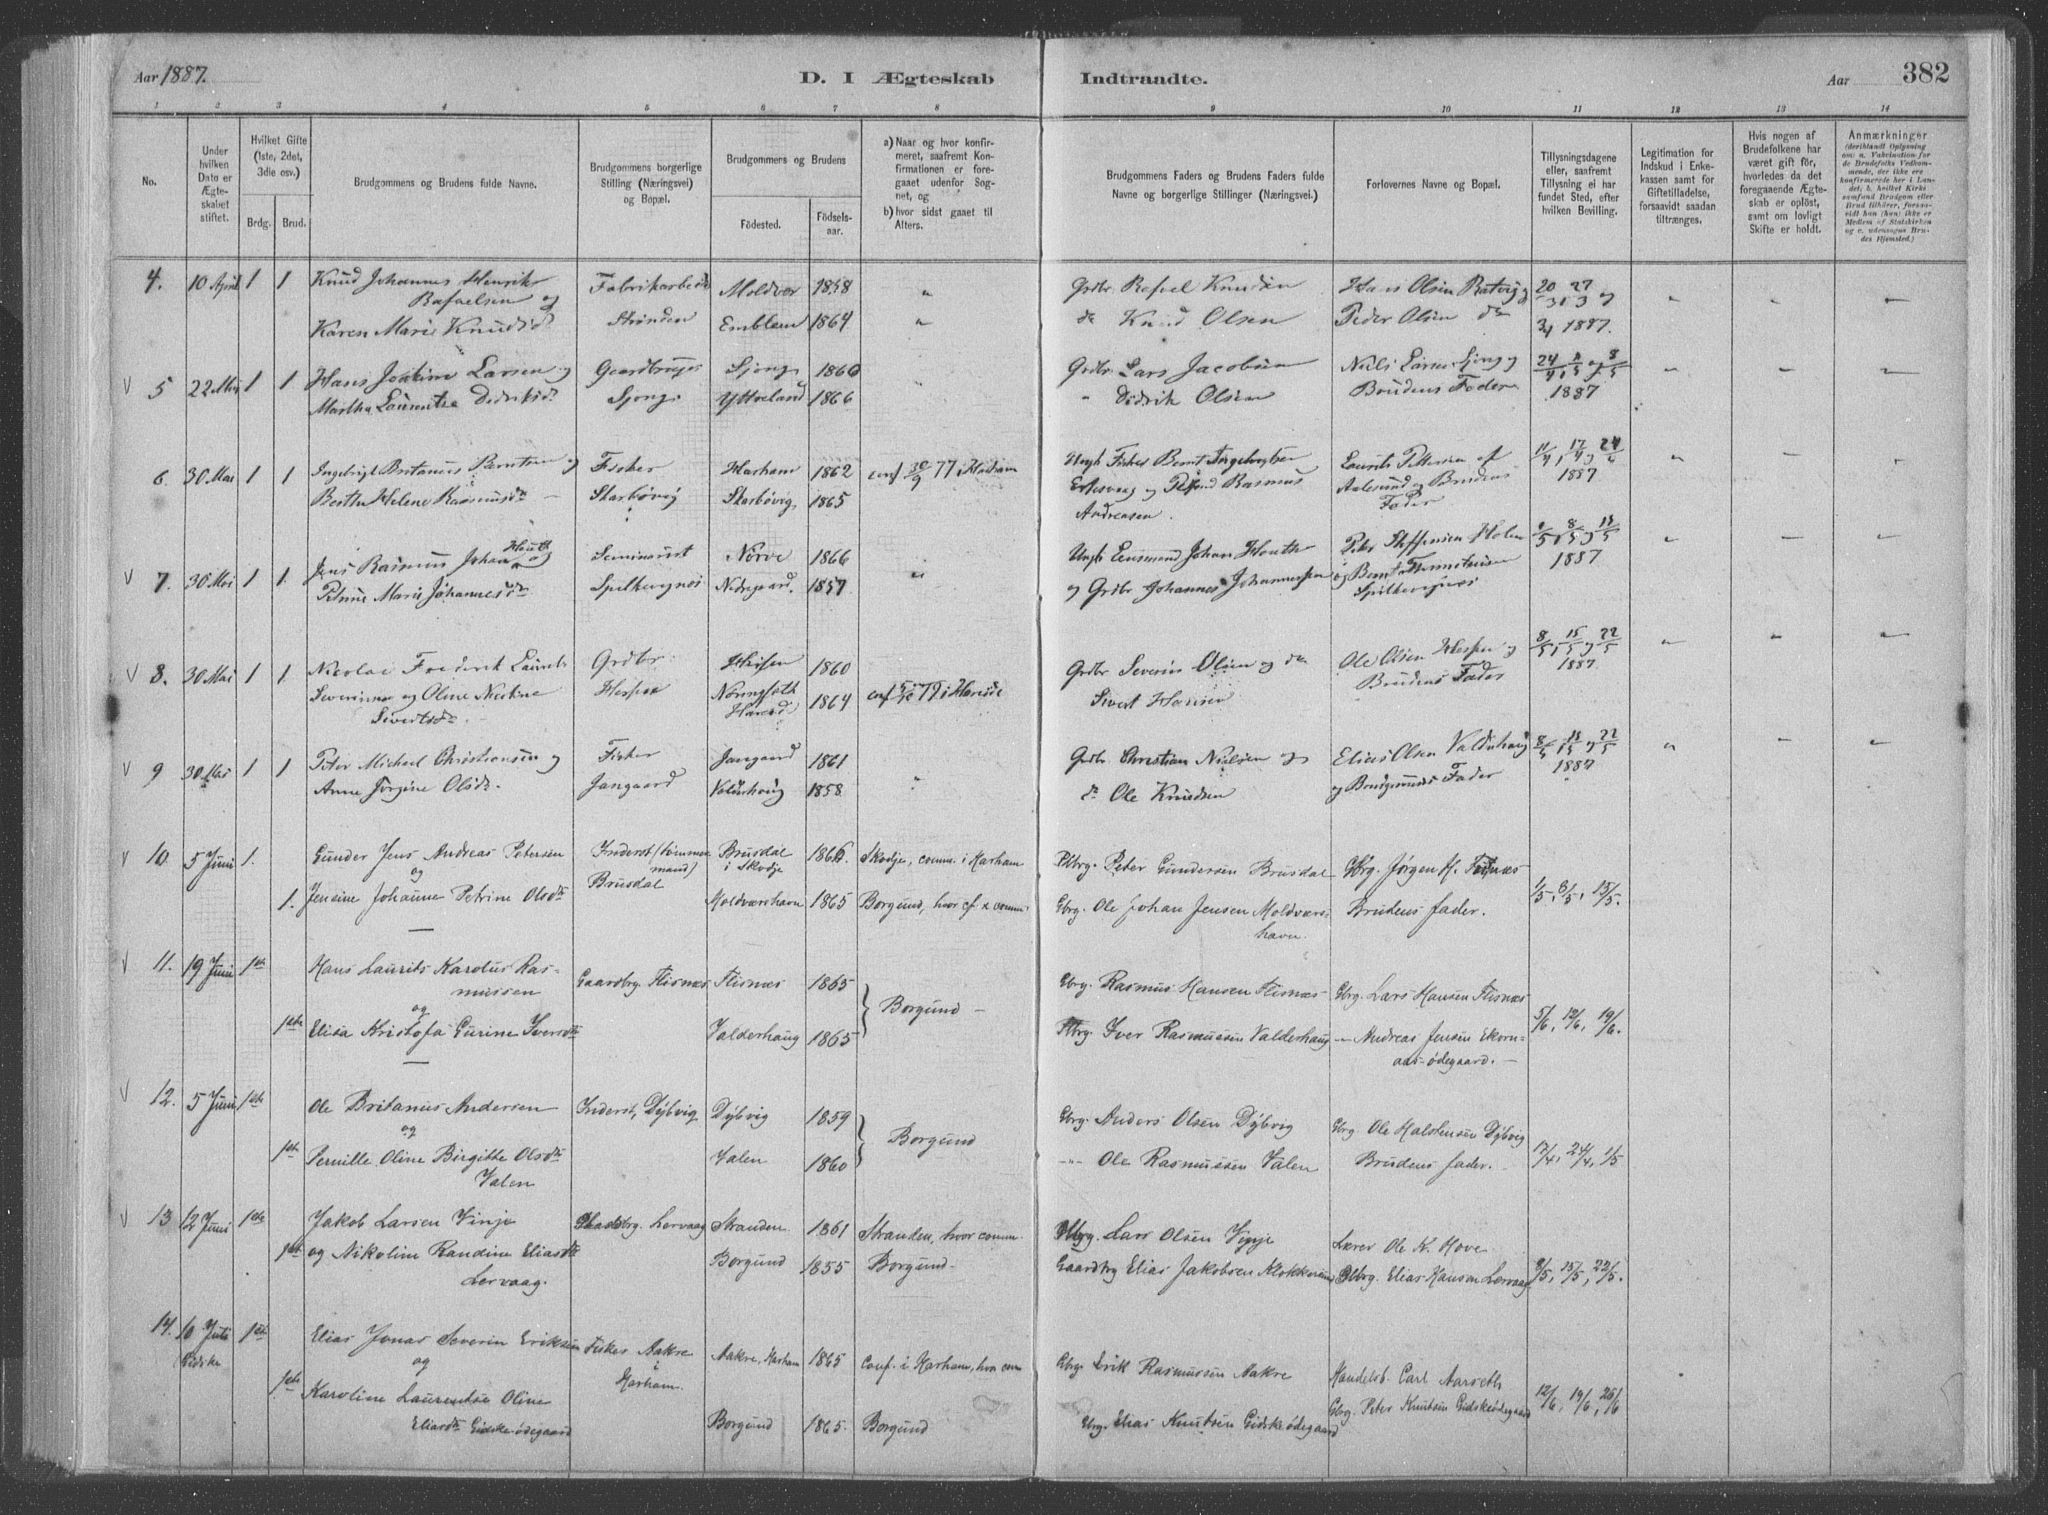 Aar 1887.
D. I Ægteskab
Indtraadte.
Aar
382
1 2 3 4 5 6 7 8 9 10 11 12 13 14
No.
Under hvilken Dato er Ægteskabet stiftet.
Hvilket Gifte (1ste, 2det, 3die osv.)
Brdg. Brud.
Brudgommens og Brudens fulde Navne.
Brudgommens borgerlige Stilling (Næringsvei) og Bopæl.
Brudgommers og Brudens
Födested.
Födselsaar.
a) Naar og hvor konfirmeret, saafremt Konfirmationen er foregaaet udenfor Sognet, og
b) hvor sidst gaaet til Alters.
Brudgommens Faders og Brudens Faders fulde Navne og borgerlige Stillinger (Næringsvei.)
Forlovernes Navne og Bopæl.
Tillysningsdagene eller, saafremt Tillysning ei har fundet Sted, efter hvilken Bevilling.
Legitimation for Indskud i Enkekassen samt for Giftetilladelse, forsaavidt saadan tiltrænges.
Hvis nogen af Brudefolkene har været gift för, hvorledes da det foregaaende Ægteskab er oplöst, samt om lovligt Skifte er holdt.
Anmærkninger
4. 10 April 1 1 Knud Johannes Henrik Fabrikarbeid Moldvær 1858 " Grdbr Rafael Knudsen Hans Olsen Ratvig og 20/3 27/3 og
Rafaelsen og
Karen Marie Knudsd Stranden Emblem 1864 " do Knud Olsen Peder Olsen do 3/4 1887.
V 5 22 Mai 1 1 Hans Joakim Larsen og Gaardbruger Sjong 1860 Grdbr Lars Jacobsen
Martha Laurentse Didriksdr Sjong Ytteland 1866 " Didrik Olsen Brudens Fader 1887
6. 30 Mai 1 1 Ingebrigt Britanus Berntsen og Fisker Harham 1862 conf 30/9 77 i Harham Ungk Fisker Bernt Laurits Pettersen af
Berthe Helene Rasmusdr Skarbøvig Skarbøvig 1865 Rasmus Aalesund og Brudens 1887
Andreasen. Fader
V 7. 30 Mai 1 1. Jens Rasmus Johan Houth og Seminarist Nørve 1866 " Johan Houth Peter Steffensen Holen 1/5, 8/5 og 15/5
Petrine Marie Johannesdr Spilkevignes Nedregaard. 1857 " og Grdbr Johannes Johannessen og Bernt 1887
Spilkevignes
V 8. 30 Mai 1 1 Nicolai Frederik Laurits Grdbr 1860 Grdbr Severin Olsen og do Ole Olsen Hessen og 8/5, 15/5 og 22/5
Severinsen og Oline Nicoline Hessen 1864 Sivert Hansen Brudens Fader 1887.
Sivertsdr.
V 9 30 Mai 1 1 Peter Michael Christiansen og Fisker Jangaard 1861 Grdbr Christian Nielsen og Elias Olsen Valderhaug 8/5, 15/5 og 22/5
Anne Jørgine Olsdr. Jangaard Valderhaug 1858 " do Ole Knudsen og Brudgommens Fader 1887
V 10. 5 Juni 1. Gunder Jens Andreas Petersen Inderst (tømmermand) Brusdal i Skodje 1866. Skodje, comm. i Harham Plbrg. Peter Gundersen Brusdal Gbrg. Jørgen H. Flisnæs
og Brusdal
1. Jensine Johanne Petrine Olsdtr Moldværshavn 1865 Borgund, hvor cf. & comm. Gbrg. Ole Johan Jensen Moldværshavn. Brudens fader. 1/5, 8/5, 15/5.
V 11. 19 Juni 1ste Hans Laurits Karolus Rasmussen Gaardbrg. Flisnæs Flisnæs 1865 Gbrg. Rasmus Hansen Flisnæs Gbrg. Lars Hansen Flisnæs
og Borgund 5/6, 12/6, 19/6.
1ste Elisa Kristofa Gurine Iversdtr Valderhaug 1865 Plbrg. Iver Rasmussen Valderhaug — Andreas Jensen Ekornaas-ødegaard.
V 12. 5 Juni 1ste Ole Britanus Andersen Inderst, Dybvig Dybvig 1859 Gbrg. Anders Olsen Dybvig Gbrg. Ole Halstensen Dybvig
og Borgund 17/4, 24/4, 1/5
1ste Pernille Oline Birgitte Olsdtr Valen Valen 1860 —"— Ole Rasmussen Valen Brudens fader.
V 13 12 Juni 1ste Jakob Larsen Vinje Pladsbrg. Lervaag Stranden 1861 Stranden, hvor comm. Plbrg. Lars Olsen Vinje Lærer Ole K. Hove
1ste og Nikoline Randine Eliasdtr Lervaag. Borgund 1855 Borgund. Gaardbrg Elias Jakobsen Klokkersund Plbrg. Elias Hansen Lervaag 8/5, 15/5, 22/5.
14. 10 Juli 1ste Elias Jonas Severin Eriksen Fisker Aakre i Harham. Aakre, Harham 1865 Conf. i Harham, hvor com Gbrg. Erik Rasmussen Aakre Handelsb. Carl Aarseth
Gidske og
1ste Karoline Laurentse Oline Eliasdtr Gidske-ødegaard Borgund 1865. Borgund Gbrg. Elias Knutsen Gidskeødegaard Gbrg. Peter Knutsen Gidskeødegaard 12/6, 19/6, 26/6